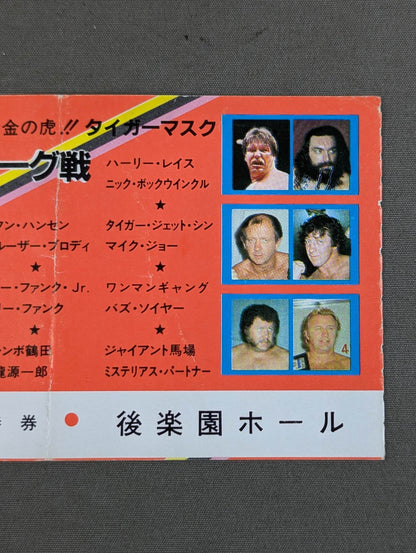 金の虎!! タイガーマスク
ーグ戦
ハーリー・レイス
ニック・ボックウインクル
★
ワン・ハンセン
ルーザー・ブロディ
★
ー・ファンク・Jr.
リー・ファンク
★
ャンボ鶴田
龍源一郎
タイガー・ジェット・シン
マイク・ジョー
★
ワンマンギャング
バズ・ソイヤー
★
ジャイアント馬場
ミステリアス・パートナー
券 ● 後楽園ホール
4